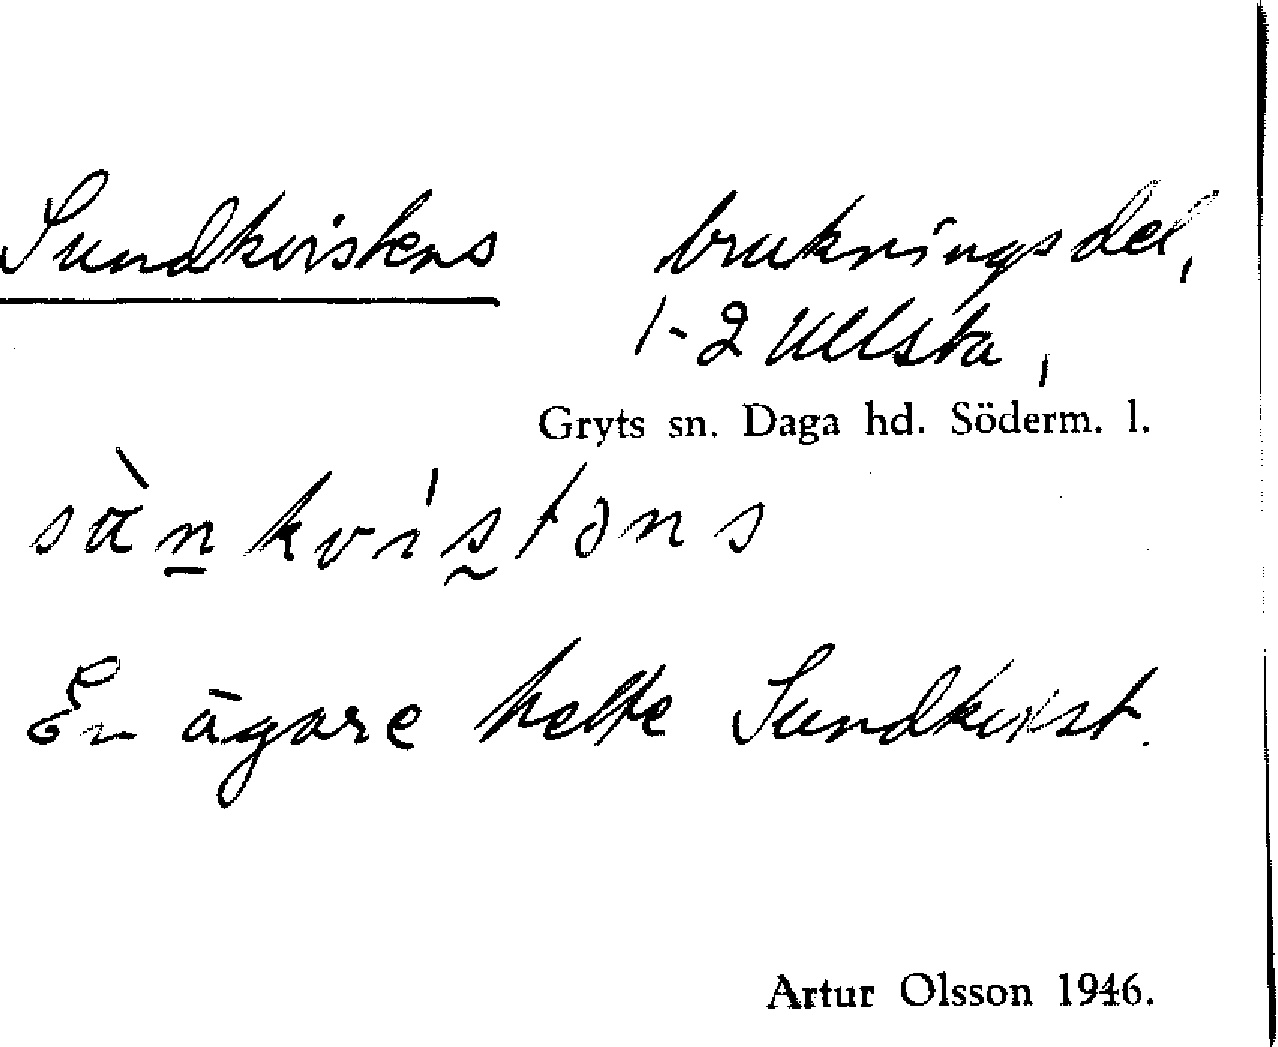 Sundkvistens brukningsdel,
1-2 Ullsta,
Gryts sn. Daga hd. Söderm. l.
sὰn̲kvis̰təns
En ägare hette Sundkvist.
Artur Olsson 1946.